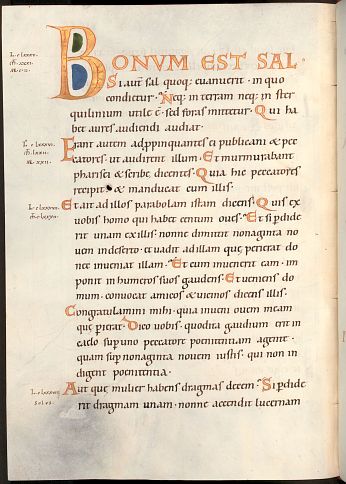 BONUM EST SAL.
Si aut sal quoq; euanuerit. in quo
condietur. Neq; in terram neq; in ster
quilinium utile ē. sed foras mittetur. Qui ha
bet aures audiendi audiat.
Erant autem adppinquantes ei publicani & pec
catores. ut audirent illum. Et murmurabant
pharisei & scribę dicentes. Quia hic peccatores
recipit & manducat cum illis.
Et ait ad illos parabolam istam dicens. Quis ex
uobis homo qui habet centum oues. Et si pdide
rit unam ex illis. nonne dimittit nonaginta no
uem in deserto. et uadit ad illam quę perierat do
nec inueniat illam. Et cum inuenerit eam. im
ponit in humeros suos gaudens. Et ueniens do
mum. conuocat amicos & uicinos dicens illis.
Congratulamini mihi. quia inueni ouem meam
quę pierat. Dico uobis. quod ita gaudium erit in
caelo sup uno peccatore poenitentiam agente.
quam sup nonaginta nouem iustis. qui non in
digent poenitentia.
Aut quę mulier habens dragmas decem. Si pdide
rit dragmam unam. nonne accendit lucernam